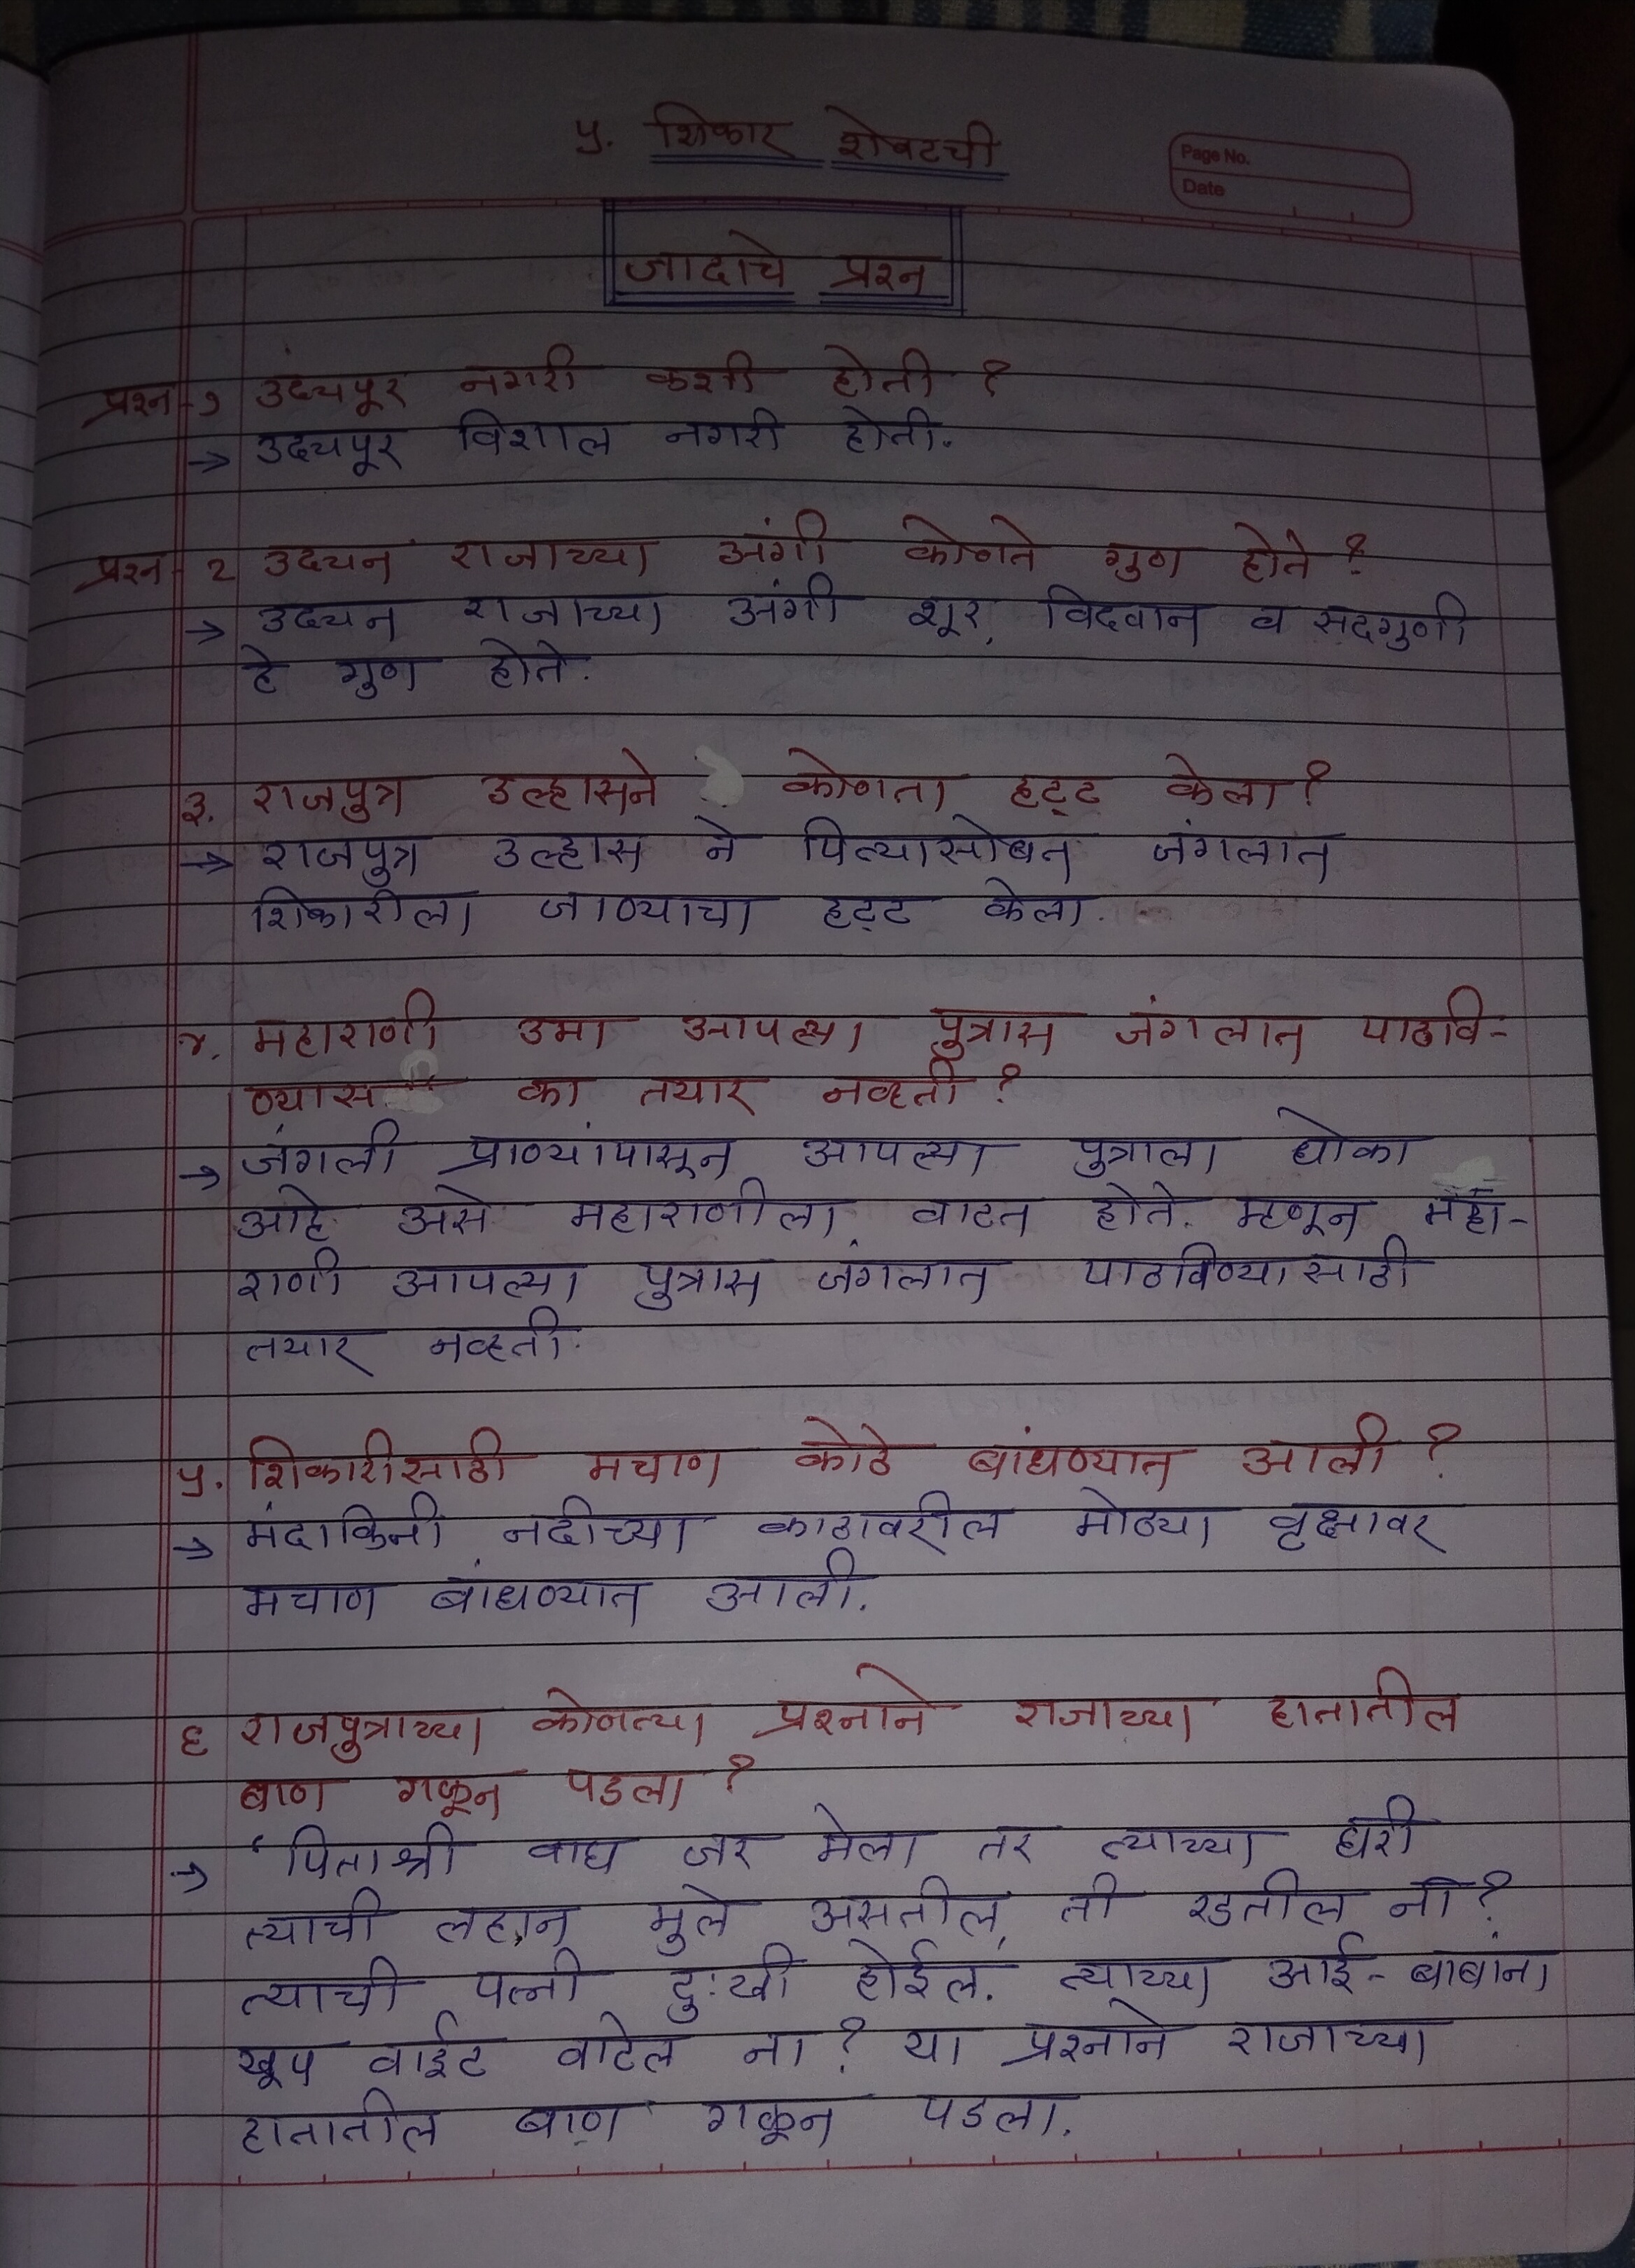 ५. शिकार शेवटची
Page No.
Date
जादाचे प्रश्न
प्रश्न-१ उदयपूर नगरी कशी होती ?
→ उदयपूर विशाल नगरी होती.
प्रश्न-२ उदयन राजाच्या अंगी कोणते गुण होते ?
→ उदयन राजाच्या अंगी शूर, विदवान व सदगुणी
हे गुण होते.
३. राजपुत्र उल्हासने कोणता हट्ट केला ?
→ राजपुत्र उल्हास ने पित्यासोबत जंगलात
शिकारीला जाण्याचा हट्ट केला.
४. महाराणी उमा आपल्या पुत्रास जंगलात पाठवि-
ण्यास का तयार नव्हती ?
→ जंगली प्राण्यांपासून आपल्या पुत्राला धोका
आहे असे महाराणीला वाटत होते. म्हणून महा-
राणी आपल्या पुत्रास जंगलात पाठविण्यासाठी
तयार नव्हती.
५. शिकारीसाठी मचाण कोठे बांधण्यात आली ?
→ मंदाकिनी नदीच्या काठावरील मोठ्या वृक्षावर
मचाण बांधण्यात आली.
६ राजपुत्राच्या कोणत्या प्रश्नाने राजाच्या हातातील
बाण गळून पडला ?
→ ‘पिताश्री वाघ जर मेला तर त्याच्या घरी
त्याची लहान मुले असतील, ती रडतील ना ?
त्याची पत्नी दुःखी होईल. त्याच्या आई-बाबांना
खूप वाईट वाटेल ना ? या प्रश्नाने राजाच्या
हातातील बाण गळून पडला.